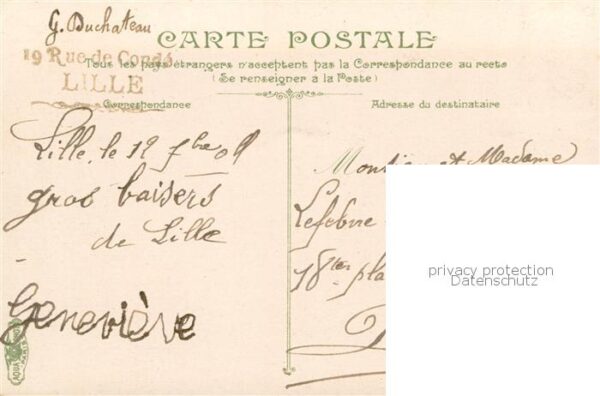 G. Duchateau
19 Rue de Condé
LILLE
CARTE POSTALE
Tous les pays étrangers n'acceptent pas la Correspondance au recto
(Se renseigner à la Poste)
Correspondance
Adresse du destinataire
Lille, le 12 7bre 09
gros baisers
de Lille
Geneviève
Monsieur et Madame
Lefebvre
18ter pla
privacy protection
Datenschutz
AQUA
PARIS